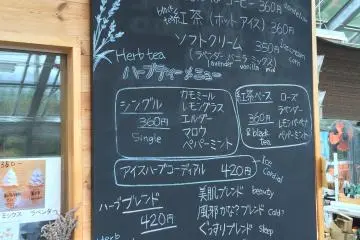 紅茶(ホットアイス)360円
ソフトクリーム 350円
(ラベンダー バニラ ミックス)
lavender vanilla mix
Herb tea
ハーブティーメニュー
シングル
360円
Single
カモミール
レモングラス
エルダー
マロウ
ペパーミント
紅茶ベース
360円
& black
tea
ローズ
ラベンダー
レモンバーベナ
ペパーミント
アイスハーブコーディアル 420円
Ice
Cordial
ハーブブレンド
420円
美肌ブレンド beauty
風邪かな?ブレンド cold?
ぐっすりブレンド sleep
Herb
ミックス
ラベンダー